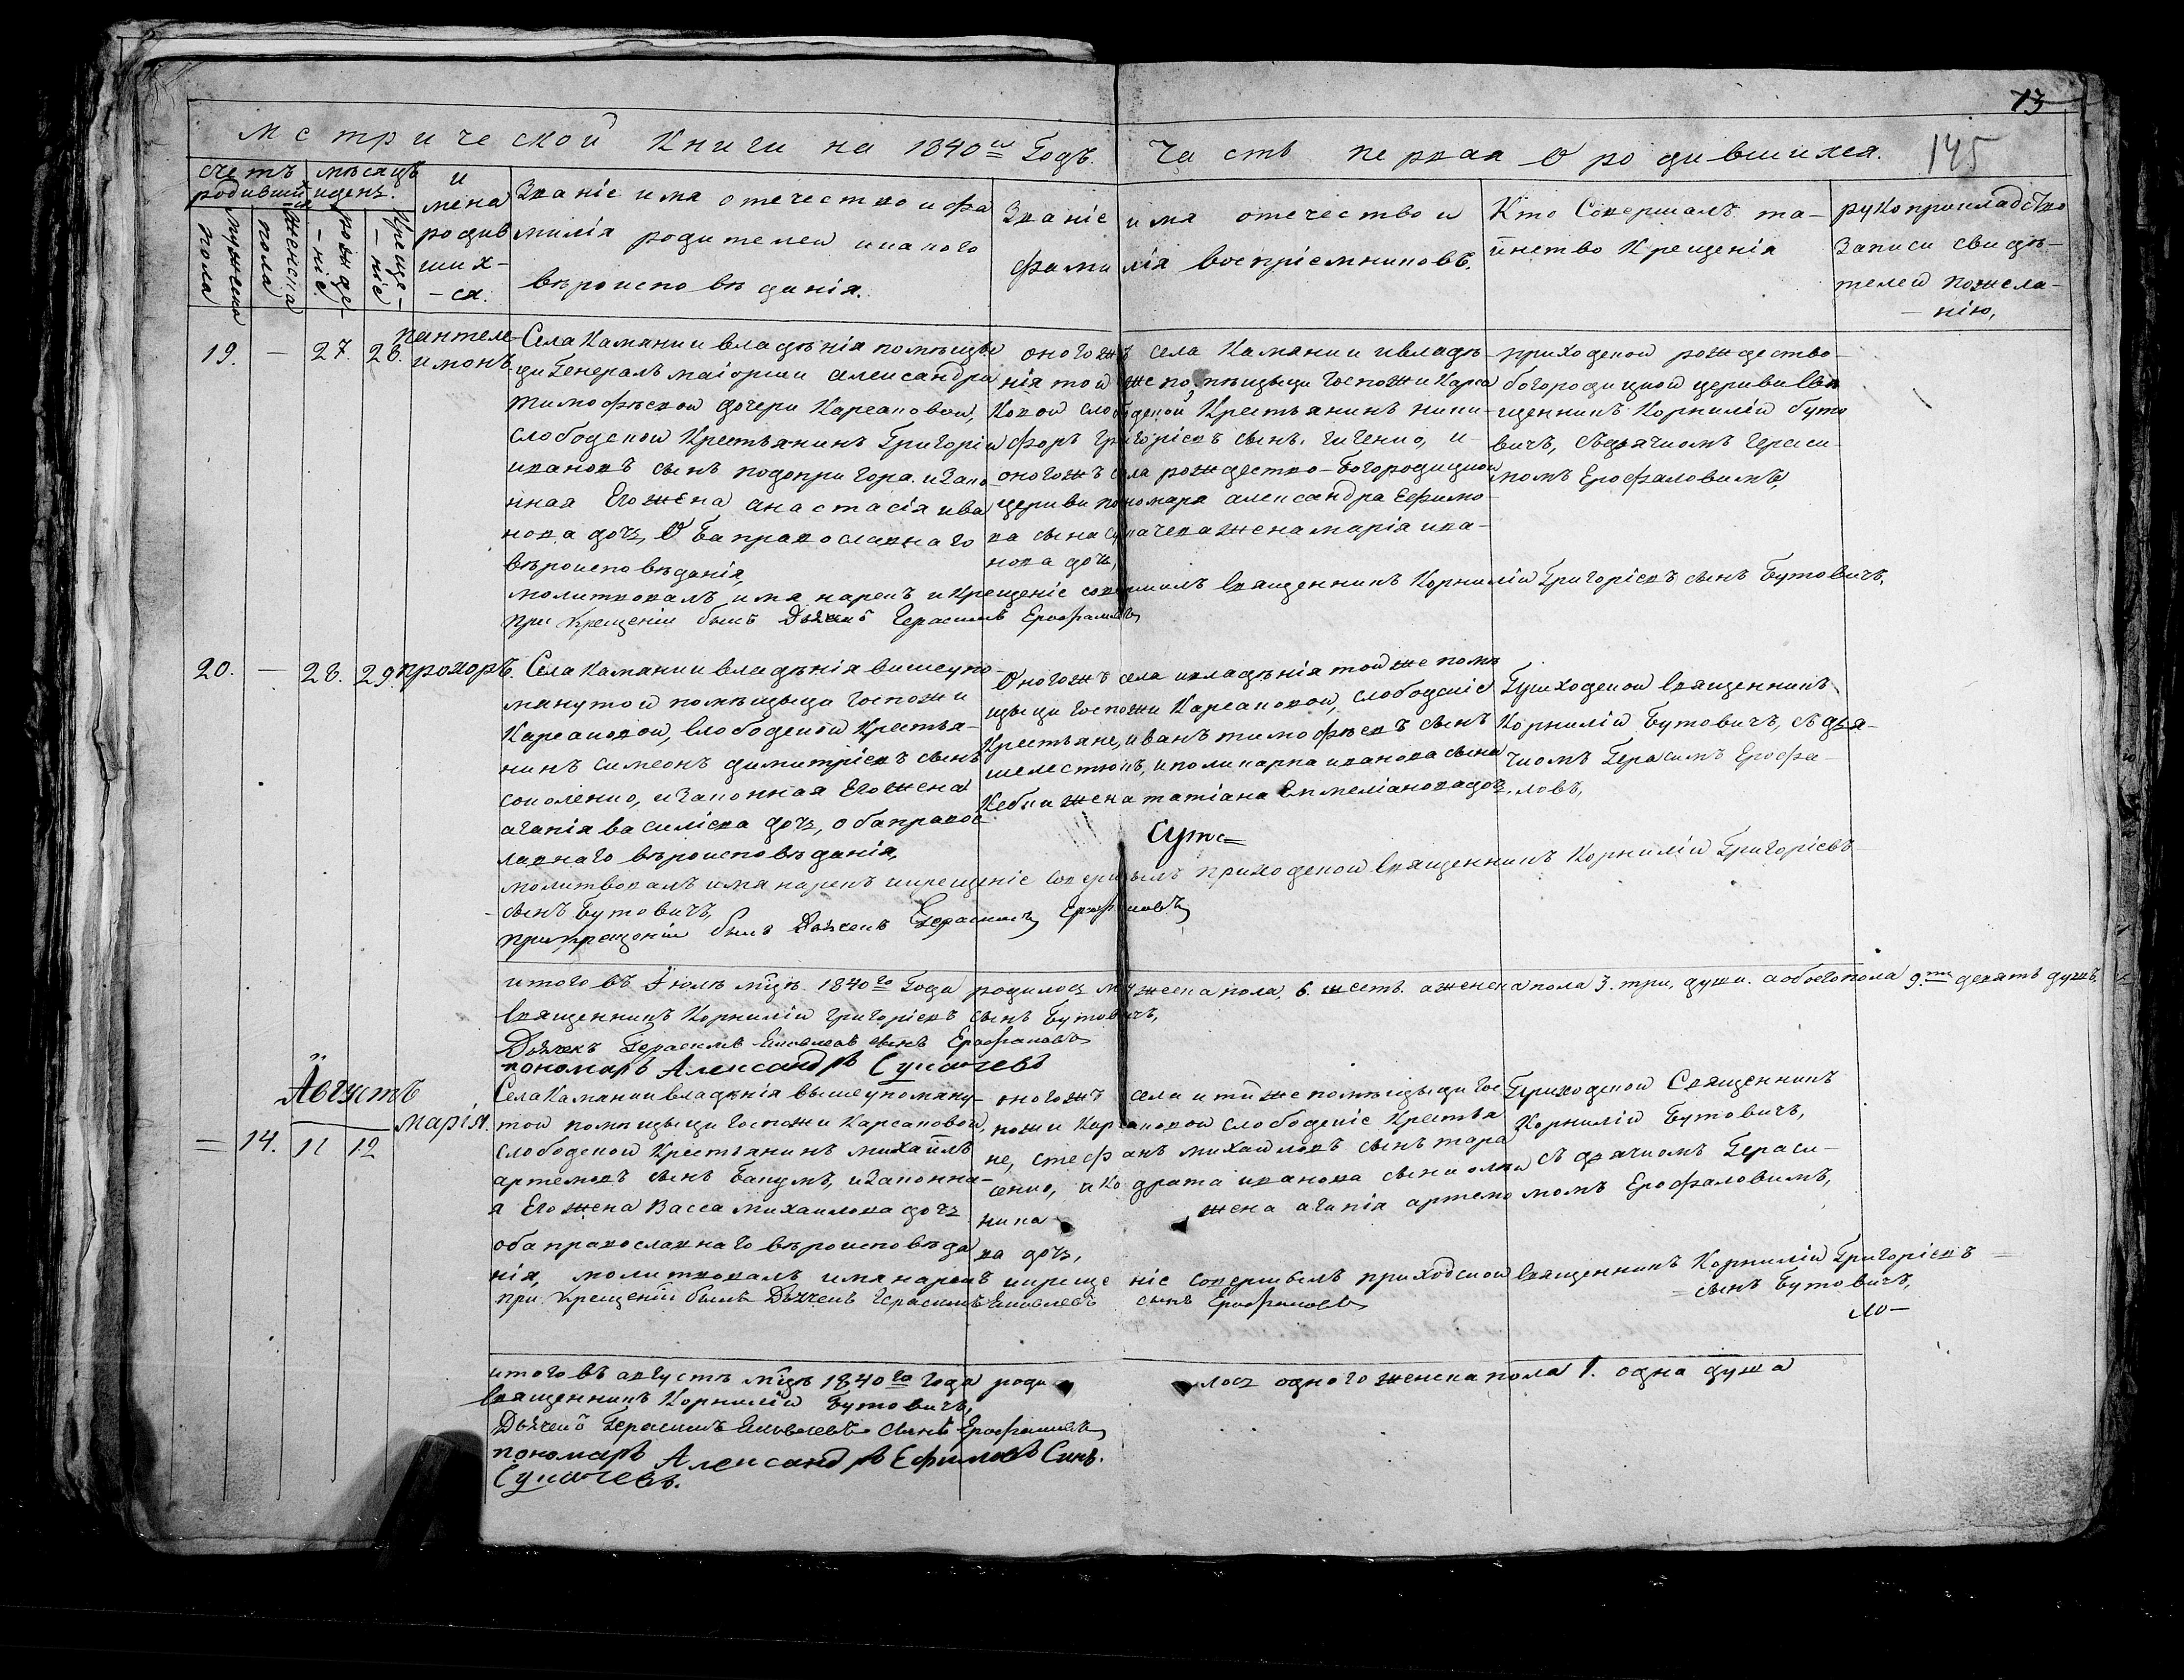 13
145
Метрической Книги на 1840й Годъ. Часть первая О родившихся.
Счетъ родившихся
мужеска пола
женска пола
Мѣсяцъ и день.
рожденіе.
Крещеніе
имена родившихся.
Званіе имя отечество и фамилія родителей и какого вѣроисповѣданія.
Званіе имя отечество и фамилія воспріемниковъ.
Кто Совершалъ таинство Крещенія
рукоприкладство Записи свидѣтелей по желанію,
19. — 27. 28. Пантелеимонъ
Села Камянки владѣнія помѣщицы Генералъ маіорши александры
тимофѣевой дочери Карсаковой,
слободской Крестьянинъ Григорій
ивановъ сынъ подопригора. и законная Его жена анастасія иванова дочь, Оба православнаго
вѣроисповѣданія,
оногожъ села Камянки и владѣнія той же помѣщицы Госпожи Карсаковой слободской Крестьянинъ никифоръ григоріевъ сынъ. гиченко, и
оногожъ села рождество-Богородицкой
церкви пономаря александра Ефимова сына сукачева жена марія иванова дочь,
приходской рождество-
богородицкой церкви Священникъ Корнилій бутовичъ, съ дьячкомъ Герасимомъ Ерофаловымъ,
молитвовалъ имя нарекъ и Крещеніе совершилъ Священникъ Корнилій Григоріевъ сынъ Бутовичъ,
при крещеніи былъ Дьячекъ Герасимъ Ерофаловъ
20. — 28. 29. Прохоръ.
Села Камянки владѣнія вишеупомянутой помѣщицы Госпожи
Карсаковой, Слободской Крестьянинъ Симеонъ димитріевъ сынъ
соколенко, и законная Его жена
агапія василіева дочь, оба православнаго вѣроисповѣданія,
Оногожъ села и владѣнія той же помѣщицы Госпожи Карсаковой, слободскіе
Крестьяне, иванъ тимофѣевъ сынъ
шелестюкъ, и поликарпа иванова сына
жена татіана Емеліанова дочь,
Приходской Священникъ
Корнилій Бутовичъ, съ дьячкомъ Герасимъ Ерофаловъ,
молитвовалъ имя нарекъ и крещеніе совершилъ приходской Священникъ Корнилій Григоріевъ
сынъ Бутовичъ,
при крещеніи былъ Дьячекъ Герасимъ Ерофаловъ
итого въ Іюлѣ мцѣ. 1840го Года родилось мужеска пола, 6. шесть. а женска пола 3. три, души. а обоего пола 9.ть девять душъ,
Священникъ Корнилій григоріевъ сынъ Бутовичъ,
Дьячекъ Герасимъ Яковлевъ сынъ Ерофаловъ
пономарь Александръ Сукачевъ
Августъ
= 14. 11 12 марія.
Села Камянки владѣнія вышеупомянутой помѣщицы Госпожи Карсаковой,
слободской Крестьянинъ михаилъ
артемовъ сынъ Бакумъ, и законная Его жена Васса михаилова дочь
оба православнаго вѣроисповѣданія,
оногожъ села и тѣйже помѣщицы Госпожи Карсаковой слободскіе Крестьяне, стефанъ михаиловъ сынъ тарасенко, и кодрата иванова сына
жена агапія артемова дочь,
Приходской Священникъ
Корнилій Бутовичъ,
съ дьячкомъ Герасимомъ Ерофаловымъ,
молитвовалъ имя нарекъ и крещеніе совершилъ приходской Священникъ Корнилій Григоріевъ
сынъ Бутовичъ,
при крещеніи былъ Дьячекъ Герасимъ Яковлевъ сынъ Ерофаловъ
итого въ августѣ мцѣ 1840го года родилось одного женска пола 1. одна душа
Священникъ Корнилій Бутовичъ,
Дьячекъ Герасимъ Яковлевъ сынъ Ерофаловъ
пономарь Александръ Ефимовъ Синъ.
Сукачевъ.